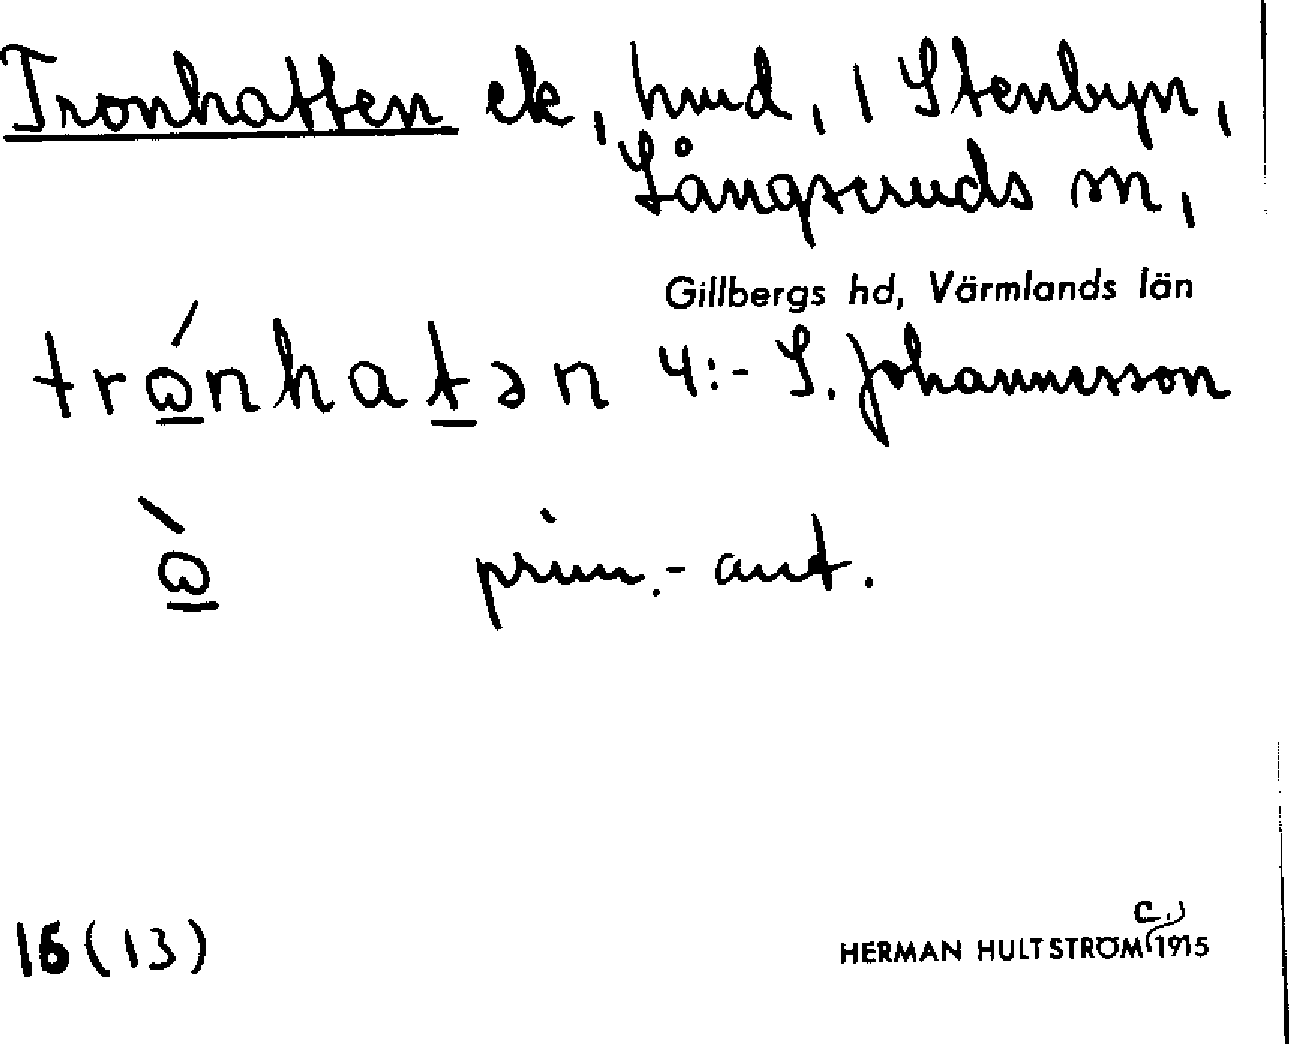 Tronhatten ek, hmd, 1 Stenbyn,
Långseruds sn,
Gillbergs hd, Värmlands län
trώnhatən 4:- S. Johannesson
ὼ prim.- ant.
16 (13)
c.
HERMAN HULTSTRÖM 1915